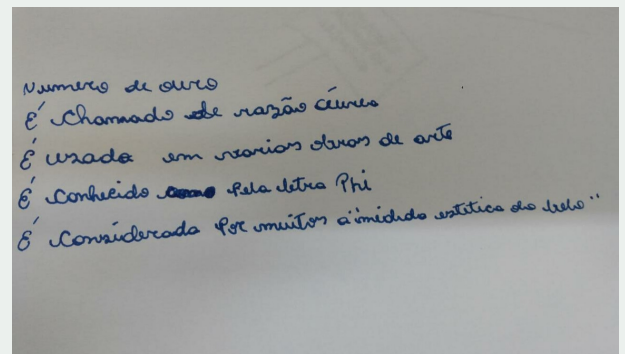 Numero de ouro
É chamado de razão áurea
É uzada em varias obras de arte
É conhecido pela letra Phi
É considerada por muitos a "medida estetica do belo"